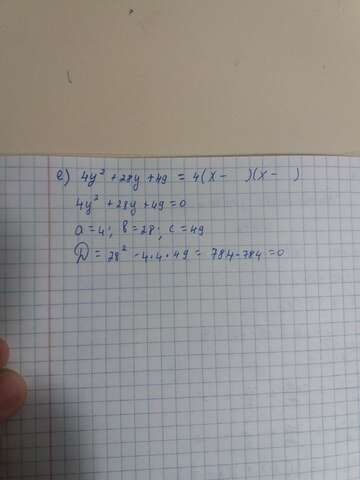 е) 4y² + 28y + 49 = 4(x -   )(x -   )
4y² + 28y + 49 = 0
a = 4; b = 28; c = 49
D = 28² - 4·4·49 = 784 - 784 = 0